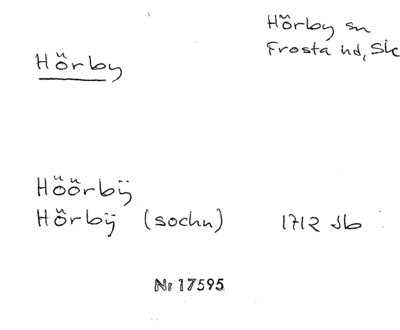 Hörby
Hörby sn
Frosta hd, Sk
Höörbÿ
Hörbÿ (sochn) 1712 Jb
Nr 17595